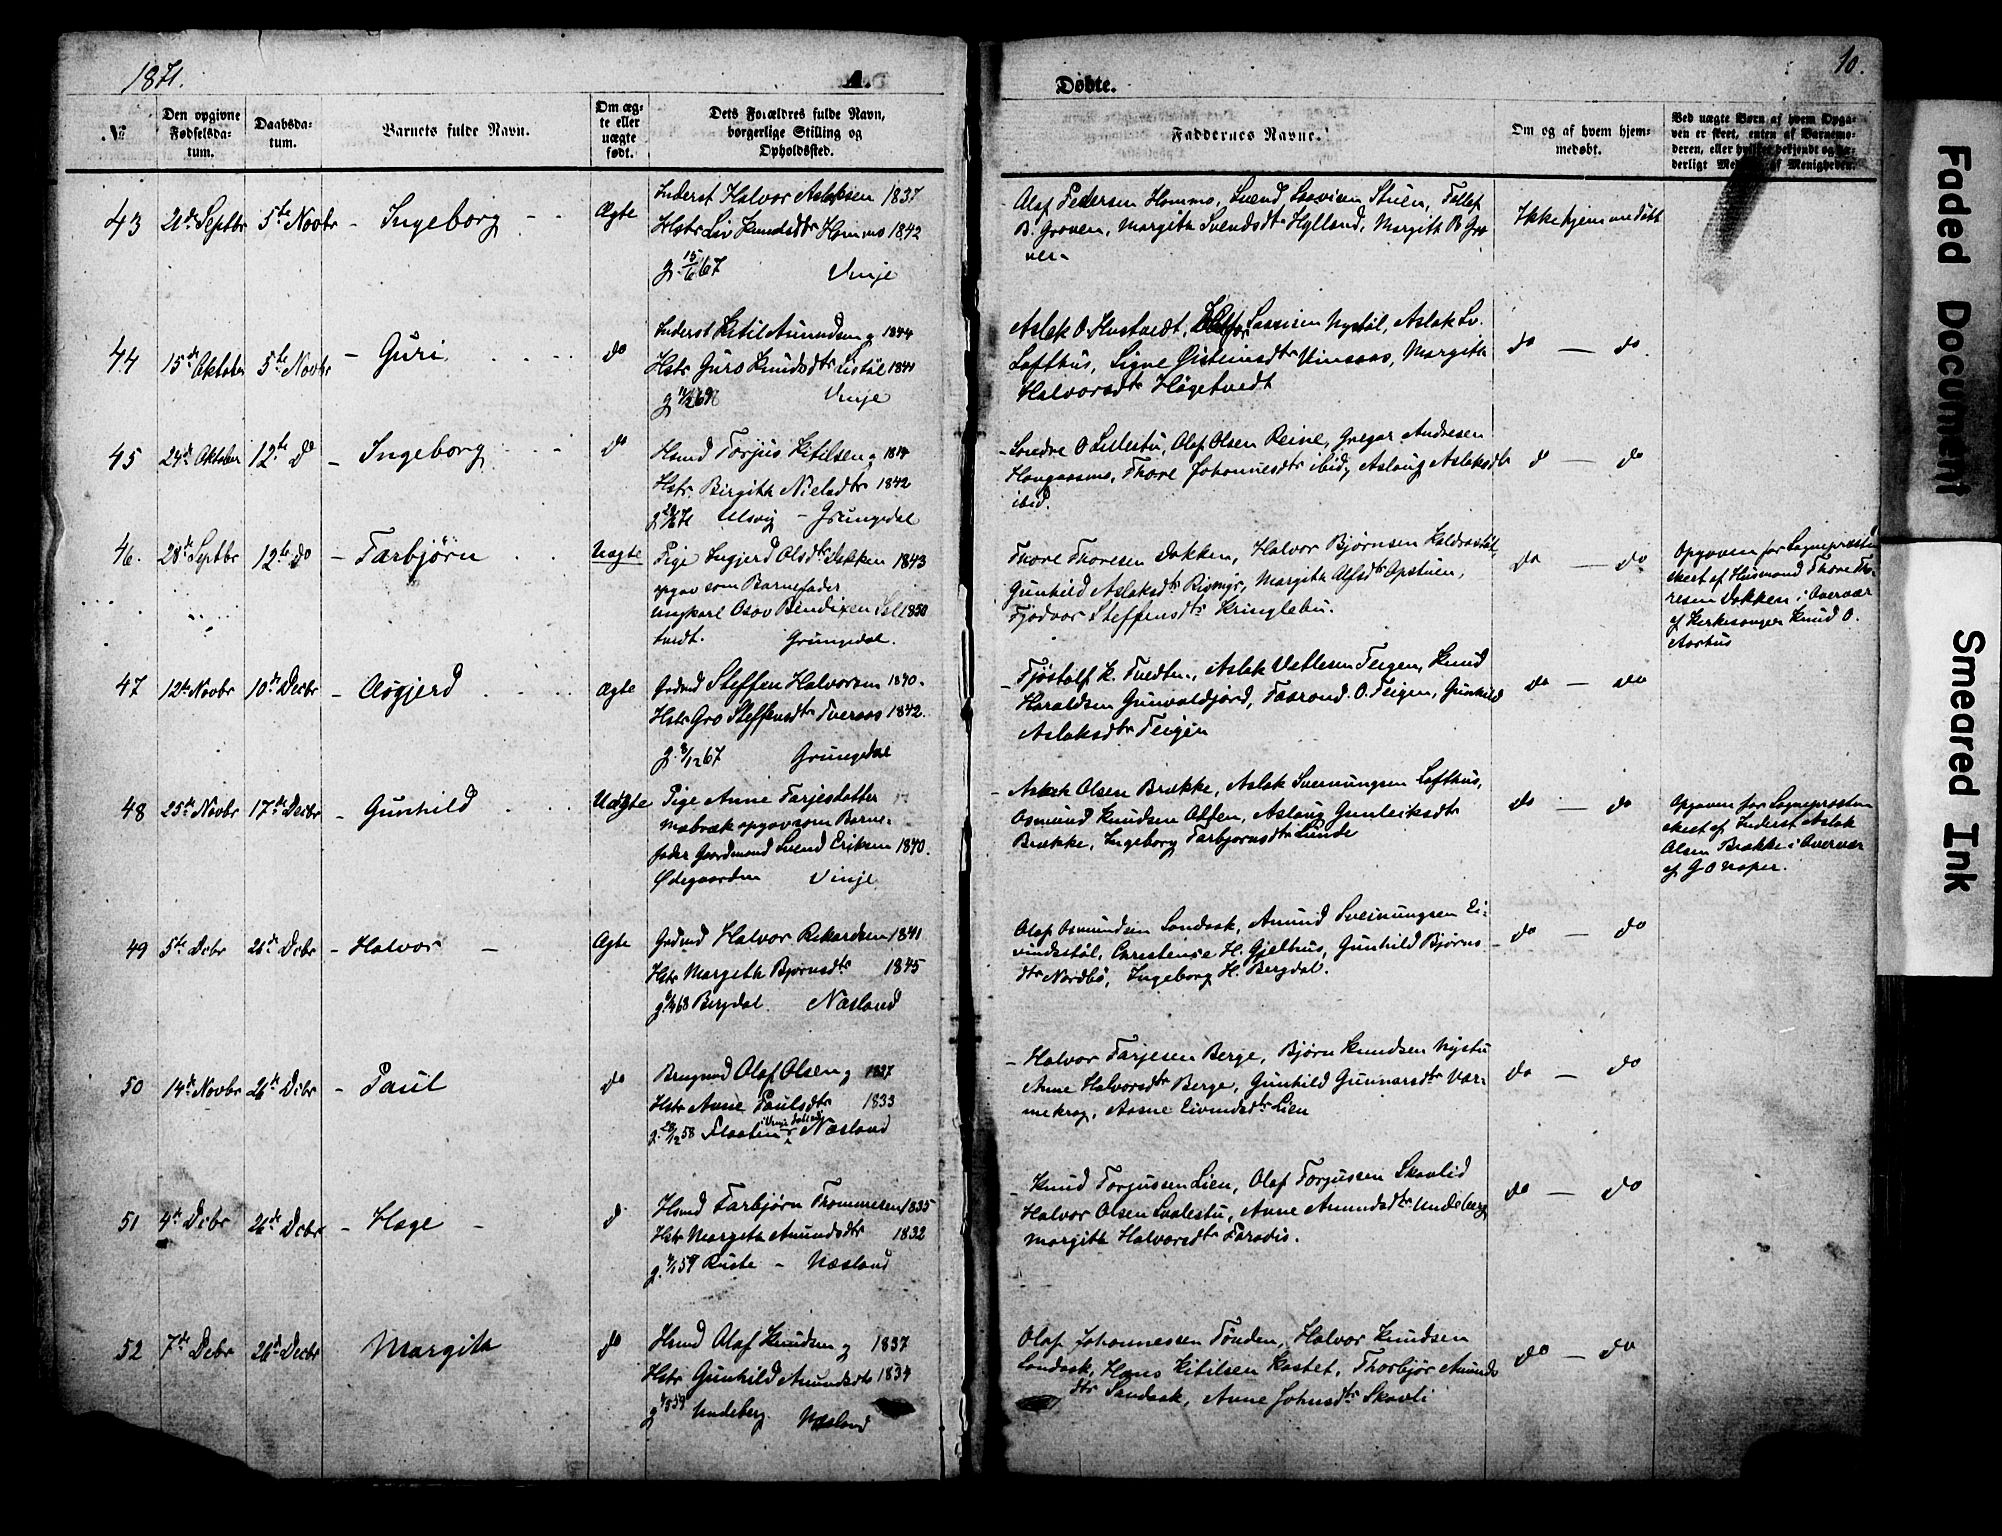 1871.
Døbte.
10.
№
Den opgivne Fødselsdatum.
Daabsdatum.
Barnets fulde Navn.
Om ægte eller uægte født.
Dets Forældres fulde Navn, borgerlige Stilling og Opholdssted.
Faddernes Navne.
Om og af hvem hjemmedøbt.
Ved uægte Børn af hvem Opgaven er skeet, enten af Barnemoderen, eller
43 21de Septbr 5te Novbr - Ingeborg - - Ægte
Inderst Halvor Aslaksen 1837
Hstr Liv Knudsdtr Hommo 1842
g. 15/6 67 Vinje
Olaf Pedersen Hommo, Svend Saavisen Stuen, Tollef
B. Groven, Margith Svendsdtr Hylland, Margith B Gro
ven
Ikke hjemmedøbt
44 15de Oktober 5te Novbr - Guri do
Inderst Ketil Amundsen og 1844
Hstr Guro Knudsdtr Listøl 1841
Vinje
Aslak O. Hustvedt, Sassisen Nystøl, Aslak Sv.
Lofthus, Signe Øisteinsdtr Vinsaas, Margith
Halvorsdtr Høgetvedt
do — do
45 24de Oktober 12te do - Ingeborg do
Hsmd Torjus Ketilsen og 1814
Hstr. Birgith Nielsdtr 1842
Ulsvig - Grungedal
- Sondre O Lillestu, Olaf Olsen Reine, Gregar Andresen
Haugaasmo, Thore Johannesdtr ibid, Aslaug Aslaksdtr
ibid.
do — do
46. 28de Septbr 12te do - Tarbjørn Uægte
Pige Ingjerd Olsdtr Dokken 1843
opgav som Barnefader
Ungkarl Osov Bendixen Sel 1850
tvedt. Grungedal.
Thore Thoresen Dokken, Halvor Bjørnsen Keldrostøl,
Gunhild Aslaksdtr Rismyr, Margith Alfsdtr Opstuen,
Tjodvor Steffensdtr Kringlebu.
do — do
Opgaven for Sognepresten
skeet af Husmand Thore Tho-
resen Dokken i Overvær
af Kirkesanger Knud O.
Aarhus
47 12te Novbr 10de Decbr - Aasgjerd Ægte
Grdmd Steffen Halvorsen 1840.
Hstr Gro Steffensdtr Tveraas 1842.
g. 8/12 67 Grungedal
- Tjøstolf K. Tvedten, Aslak Vetlesen Teigen, Knud
Haraldsen Gunvaldjord, Taarand O. Teigen, Gunhild
Aslaksdtr Teigen
do — do
48 25de Novbr 17de Decbr - Gunhild Uægte
Pige Anne Tarjesdatter
Mobræk opgav som Barne-
fader Gaardmand Svend Eriksen 1840.
Ødegaarden Vinje
- Aslak Olsen Brække, Aslak Sveinungsen Lofthus,
Osmund Knudsen Otten, Aslaug Gunleiksdtr
Brække, Ingeborg Tarbjørnsdtr Lunde
do — do
Opgaven for Sognepresten
skeet af Inderst Aslak
Olsen Brække i Overvær
af G O Vaper.
49 5te Debr 26de Debr - Halvor - Ægte
Grdmd Halvor Rikardsen 1841
Hstr Margith Bjørnsdtr 1845
Bergdal Næsland
Olaf Osmundsen Sandaak, Amund Sveinungsen Ei-
vindsstøl, Christense H. Gjelhus, Gunhild Bjørns
dtr Nordbø, Ingeborg H. Bergdal.
- do — do
50 14de Novbr 26de Debr - Paul do
Brugmd Olaf Olsen og 1837
Hstr Anne Paulsdtr 1833
g. 28/12 58 Flaatin Næsland
- Halvor Tarjesen Berge, Bjørn Knudsen Nystu
Anne Halvorsdtr Berge, Gunhild Gunnarsdtr Var-
mekrog, Aasne Eivindsdtr Lien
do — do
51 4de Debr 26de Debr - Hage - do
Hsmd Tarbjørn Thommesen 1835
Hstr Margith Amundsdtr 1832
Ruste - Næsland
- Knud Torjussen Lien, Olaf Torjussen Skavlid
Halvor Olsen Svalestu, Anne Amundsdtr Undeberg
Margith Halvorsdtr Paradis.
do — do
52 7de Debr 26de Decbr Margith do
Hsmd Olaf Knudsen og 1837
Hstr Gunhild Amundsdtr 1834
Undeberg. Næsland
Olaf Johannessen Tønden, Halvor Knudsen
Sandaak, Hans Kitilsen Rastet, Thorbjør Amunds
dtr Sandaak, Anne Johnsdtr Skavli
do — do
Faded Document
Smeared Ink